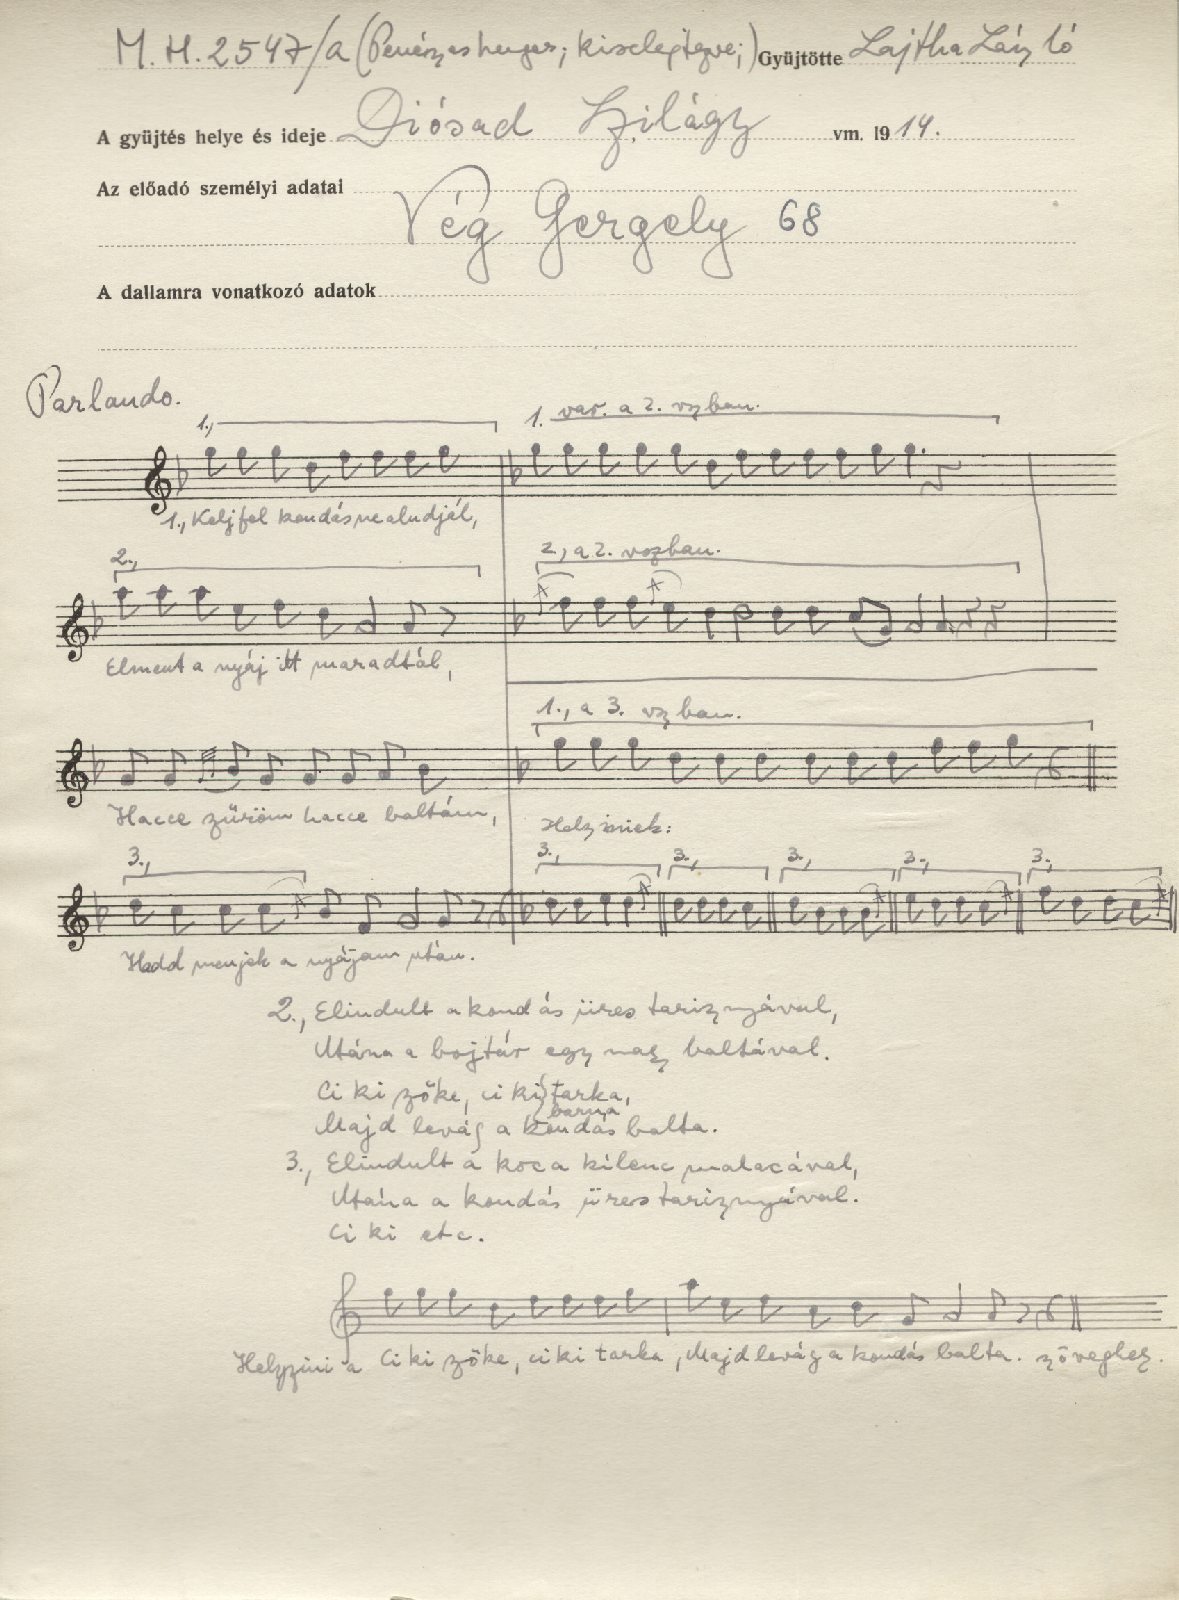 M. H. 2547/a (Penészes henger; kiselejtezve;) Gyüjtötte Lajtha László
A gyüjtés helye és ideje Diósad, Szilágy vm. 1914.
Az előadó személyi adatai
Vég Gergely 68
A dallamra vonatkozó adatok
Parlando.
1., 1. var. a 2. vszban.
1., Kelj fel kondás ne aludjál,
2., 2., a 2. vszban.
Elment a nyáj itt maradtál,
1., a 3. vszban.
Hacce züröm hacce baltám,
Helysziniek:
3., 3., 3., 3., 3., 3.,
Hadd menjek a nyájam után.
2., Elindult a kondás üres tarisznyával,
Utána a bojtár egy nagy baltával.
Ci ki szőke, ci ki tarka,
barna
Majd levág a kondás balta.
3., Elindult a koca kilenc malacával,
Utána a kondás üres tarisznyával.
Ci ki etc.
Helyszini a Ci ki szőke, ci ki tarka, Majd levág a kondás balta. szöveghez.